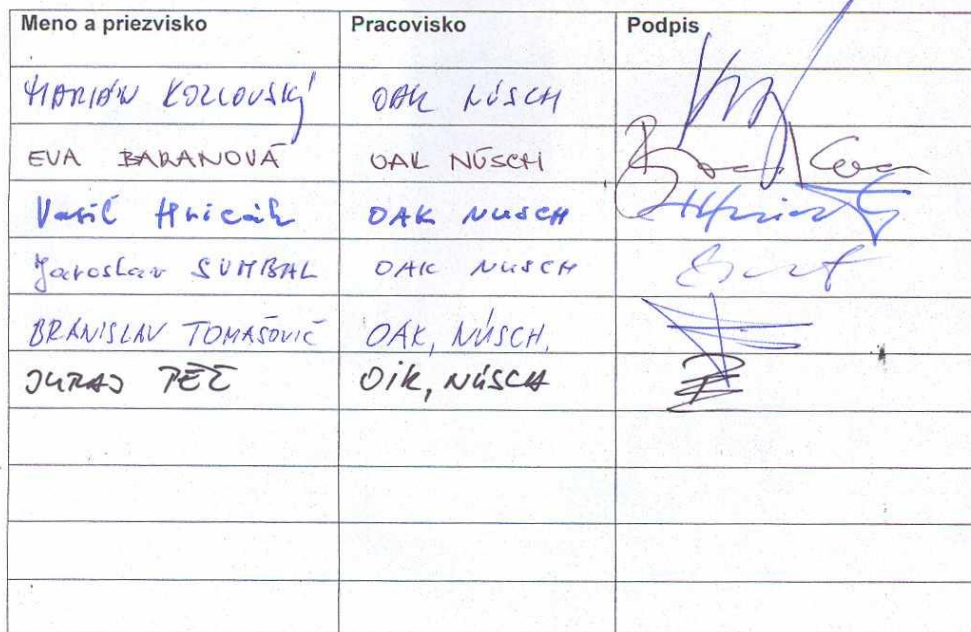 Meno a priezvisko Pracovisko Podpis
MARIÁN KOZLOVSKÝ OAK NÚSCH
EVA BARANOVÁ OAK NÚSCH
Vasil Hricák OAK NUSCH
Jaroslav SUMBAL OAK NUSCH
BRANISLAV TOMAŠOVIČ OAK, NÚSCH,
JURAJ PÉČ OIK, NÚSCH